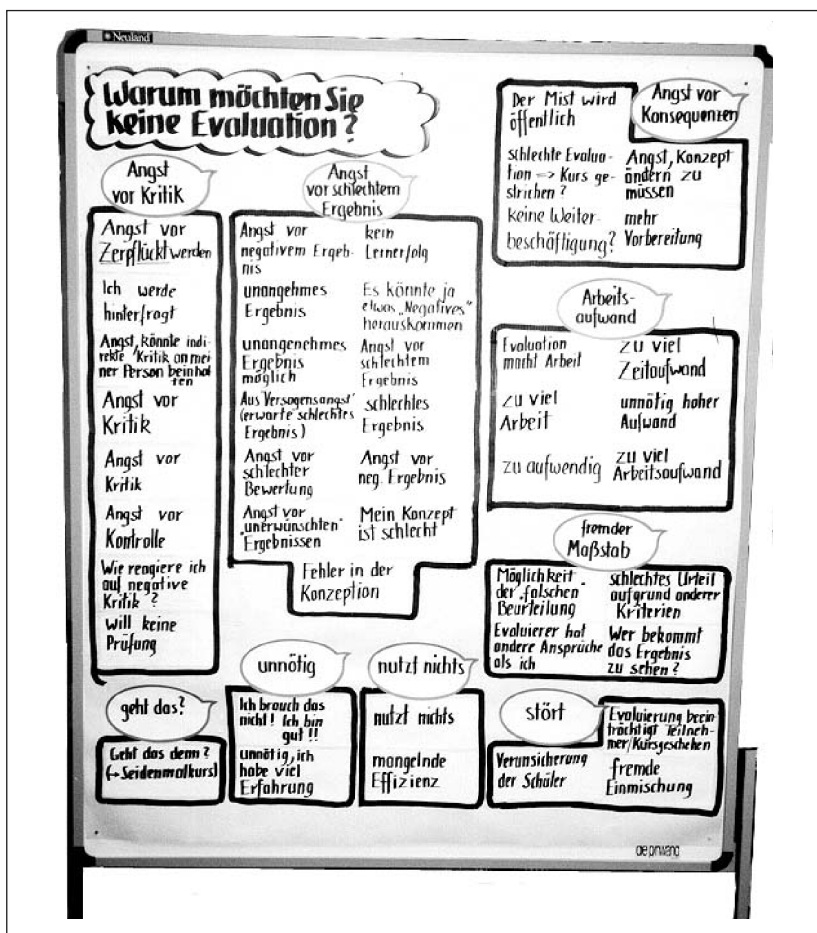 Neuland
Warum möchten Sie
keine Evaluation?
Angst
vor Kritik
Angst vor
Zerpflückt werden
Ich werde
hinterfragt
Angst, könnte indi-
rekte Kritik an mei
ner Person beinhal
ten
Angst vor
Kritik
Angst vor
Kritik
Angst vor
Kontrolle
Wie reagiere ich
auf negative
Kritik?
Will keine
Prüfung
Angst
vor schlechtem
Ergebnis
Angst vor
negativem Ergeb-
nis
unangehmes
Ergebnis
unangenehmes
Ergebnis
möglich
Aus "Versagensangst"
(erwarte schlechtes
Ergebnis)
Angst vor
schlechter
Bewertung
Angst vor
"unerwünschten"
Ergebnissen
kein
Lernerfolg
Es könnte ja
etwas "Negatives"
herauskommen
Angst vor
schlechtem
Ergebnis
schlechtes
Ergebnis
Angst vor
neg. Ergebnis
Mein Konzept
ist schlecht
Fehler in der
Konzeption
Angst vor
Konsequenzen
Der Mist wird
öffentlich
schlechte Evalua-
tion => Kurs ge-
strichen?
keine Weiter-
beschäftigung?
Angst, Konzept
ändern zu
müssen
mehr
Vorbereitung
Arbeits-
aufwand
Evaluation
macht Arbeit
zu viel
Arbeit
zu aufwendig
zu viel
Zeitaufwand
unnötig hoher
Aufwand
zu viel
Arbeitsaufwand
fremder
Maßstab
Möglichkeit
der "falschen"
Beurteilung
Evaluierer hat
andere Ansprüche
als ich
schlechtes Urteil
aufgrund anderer
Kriterien
Wer bekommt
das Ergebnis
zu sehen?
geht das?
Geht das denn?
(→Seidenmalkurs)
unnötig
Ich brauch das
nicht! Ich bin
gut!!
unnötig, ich
habe viel
Erfahrung
nutzt nichts
nutzt nichts
mangelnde
Effizienz
stört
Verunsicherung
der Schüler
Evaluierung beein
trächtigt Teilneh-
mer/Kursgeschehen
fremde
Einmischung
die pinwand